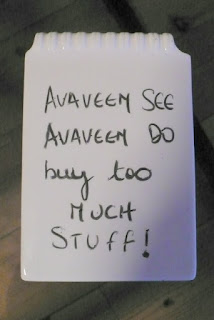 AVAVEEM SEE
AVAVEEM DO
buy too
MUCH
STUFF!